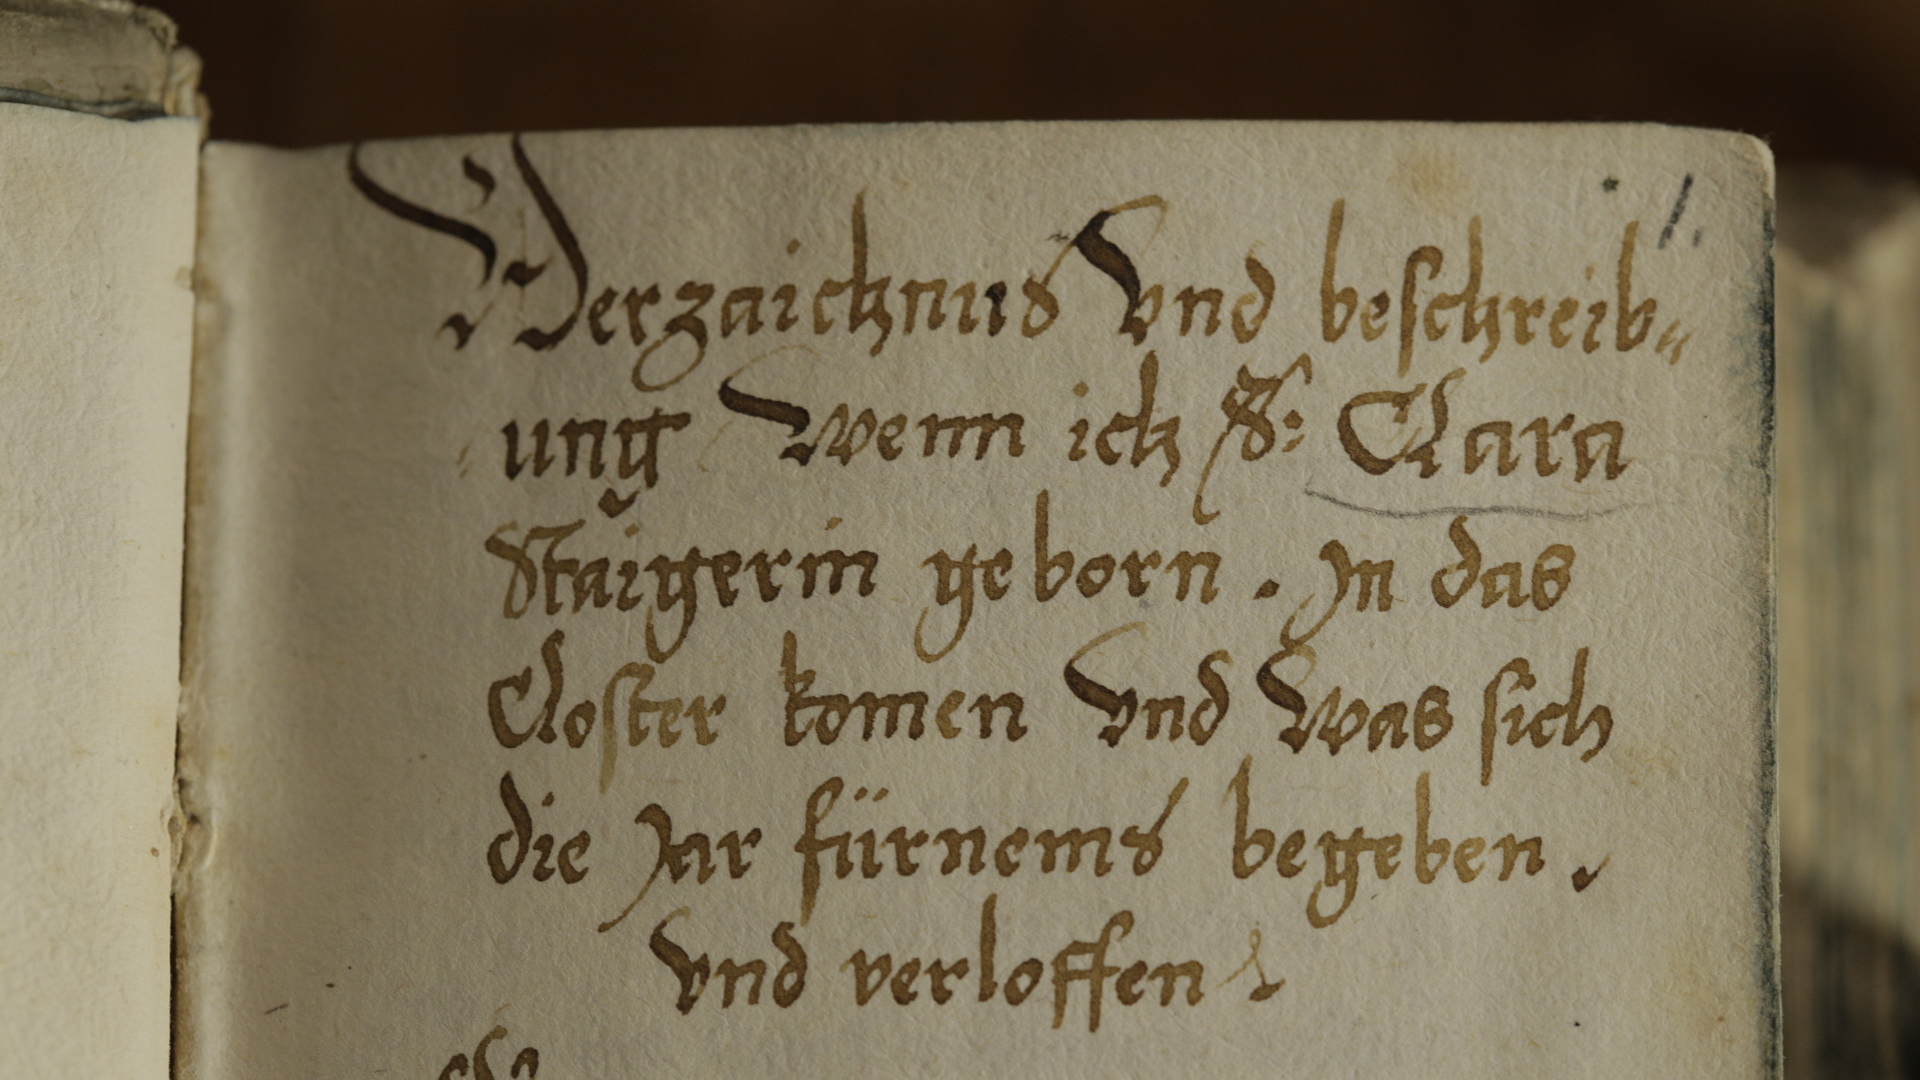 1.
Verzaichnus vnd beschreib„
„ung Wenn ich S: Clara
Staigerin geborn. In das
Closter komen vnd Was sich
die Jar fürnems begeben.
vnd verloffen